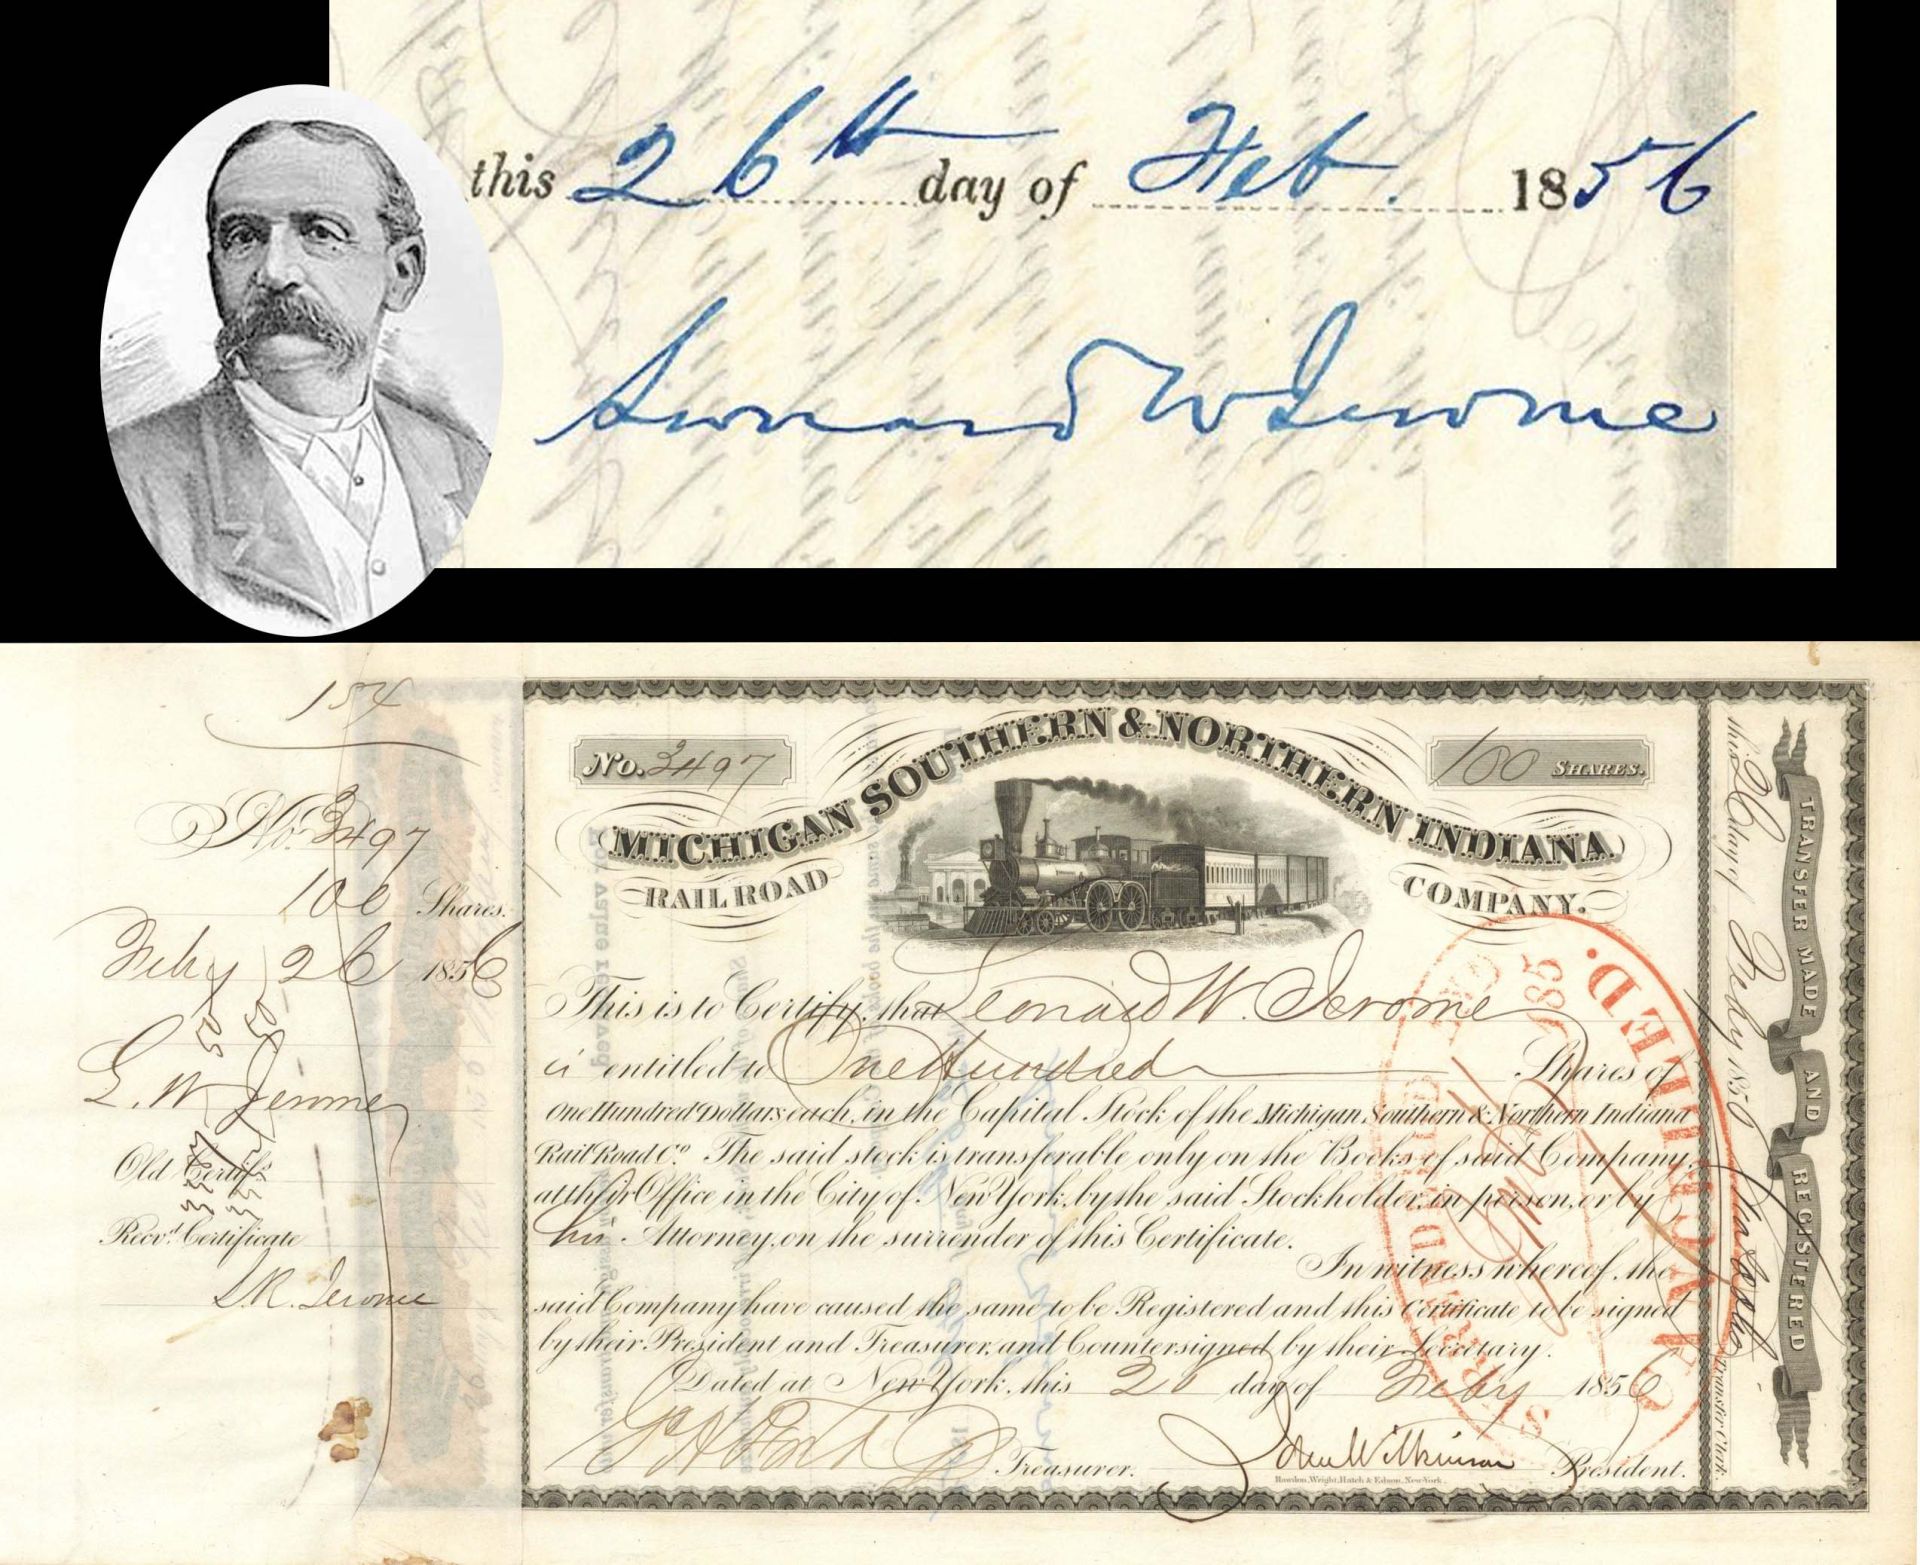 this 26th day of Feb. 1856
Leonard W Jerome
154
No. 3497
100 Shares.
Feby 26 1856
50
50
L. W. Jerome
Old Certifs.
Recvd. Certificate
L.R. Jerome
No. 3497
100 SHARES.
MICHIGAN SOUTHERN & NORTHERN INDIANA
RAILROAD COMPANY.
This is to Certify, that Leonard W. Jerome
is entitled to One Hundred Shares of
One Hundred Dollars each, in the Capital Stock of the Michigan Southern & Northern Indiana
Rail Road Co. The said stock is transferable only on the Books of said Company,
at their Office in the City of New York, by the said Stockholder, in person, or by
his Attorney, on the surrender of this Certificate.
In witness whereof, the
said Company have caused the same to be Registered and this Certificate to be signed
by their President and Treasurer, and Countersigned by their Secretary.
Dated at New York, this 26 day of Feby 1856
Treasurer. John Wilkinson President.
Rawdon, Wright, Hatch & Edson, New-York.
CANCELLED.
185
TRANSFER MADE AND REGISTERED
this 26 day of Feby 1856
Transfer Clerk.